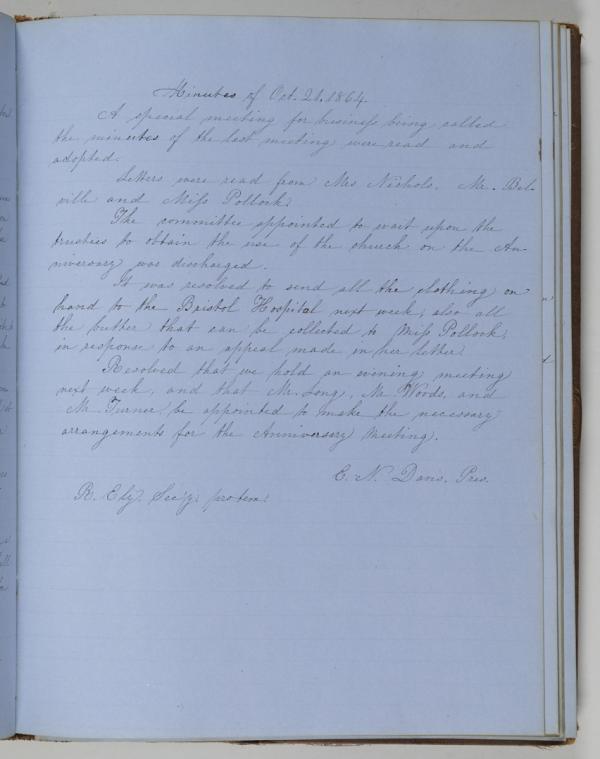 Minutes of Oct. 21. 1864.
A special meeting for business being called
the minutes of the last meeting were read and
adopted.
Letters were read from Mrs Nichols. Mr. Bel-
ville and Miss Pollock.
The committee appointed to wait upon the
trustees to obtain the use of the church on the An-
niversary was discharged.
It was resolved to send all the clothing on
hand to the Bristol Hospital next week, also all
the butter that can be collected to Miss Pollock,
in response to an appeal made in her letter.
Resolved that we hold an evening meeting
next week, and that Mr. Long, Mr. Woods, and
Mr. Turner, be appointed to make the necessary
arrangements for the Anniversary Meeting.
E. N. Davis. Pres.
R. Ely. Sec'y. protem.